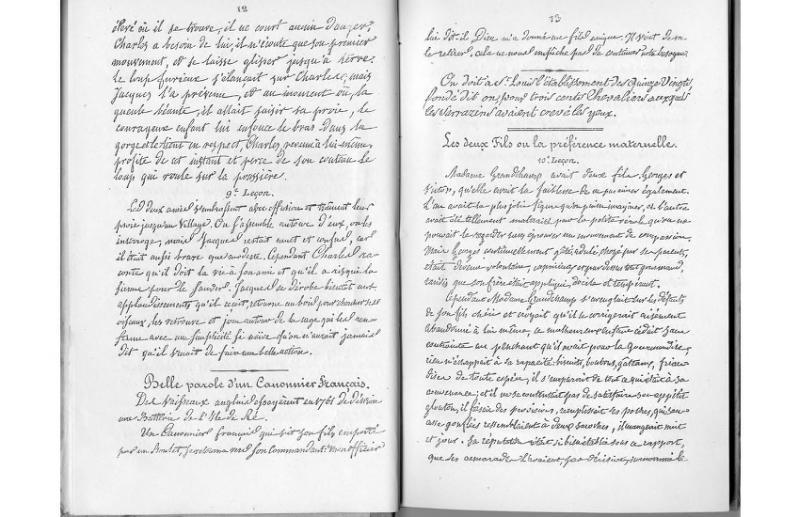 12
élevé où il se trouve, il ne court aucun danger,
Charles a besoin de lui, il n'écoute que son premier
mouvement, et se laisse glisser jusqu'à terre.
Le loup furieux s'élançait sur Charles, mais
Jacques l'a prévenu, et au moment où, la
gueule béante, il allait saisir sa proie, le
courageux enfant lui enfonce le bras dans la
gorge et le tient en respect, Charles, revenu à lui même,
profite de cet instant et perce de son couteau le
loup qui roule sur la poussière.
9e Leçon.
Les deux amis s'embrassent avec effusion et traînent leur
proie jusqu'au village. On s'assemble autour d'eux, on les
interroge, mais Jacques restait muet et confus, car
il était aussi brave que modeste. Cependant Charles ra-
conte qu'il doit la vie à son ami et qu'il a risqué la
sienne pour le sauver. Jacques se dérobe bientôt aux
applaudissements qu'il reçoit, retourne au bois pour chercher ses
oiseaux, les retrouve et joue autour de la cage qui les ren-
ferme avec une simplicité si naïve, qu'on n'aurait jamais
dit qu'il venait de faire une belle action.
Belle parole d'un Canonnier Français.
Des Vaisseaux anglais essayèrent en 1761 de détruire
une Batterie de l'Ile de Ré.
Un Canonnier français qui vit son fils emporté
par un Boulet, son Commandant: Mon officier
13
lui dit-il, Dieu m'a donné ce fils unique, Il vient de me
le retirer, cela ne nous empêche pas de continuer notre besogne.
On doit à St. Louis l'établissement des Quinze Vingts,
fondé dit-on, pour trois cents Chevaliers auxquels
les Sarrazins avaient crevé les yeux.
Les deux Fils ou la préférence maternelle.
10e Leçon.
Madame Grandchamp avait deux fils Georges et
Victor, qu'elle avait la faiblesse de ne pas aimer également.
L'un avait la plus jolie figure qu'on puisse imaginer, et l'autre
avait été tellement maltraité par la petite vérole qu'on ne
pouvait le regarder sans éprouver un mouvement de compassion.
Mais Georges continuellement gâté, par ses parents,
était devenu volontaire, capricieux et par dessus tout gourmand,
tandis que son frère était appliqué, docile et tempérant.
Cependant Madame Grandchamp s'aveuglait sur les défauts
de son fils chéri et croyait qu'il se corrigerait aisément
abandonné à lui même, ce malheureux enfant cédait sans
contrainte au penchant qu'il avait pour la gourmandise,
rien n'échappait à sa rapacité: biscuits, bonbons, gâteaux, frian-
dises de toute espèce, il s'emparait de tout ce qui était à sa
convenance; et il ne se contentait pas de satisfaire son appétit
glouton, il faisait des provisions, remplissait ses poches, qui
gonflées ressemblaient à deux il mangeait nuit
et jour. Sa réputation était si bien établie sous ce rapport,
que ses camarades l'avaient, par dérision, surnommé le